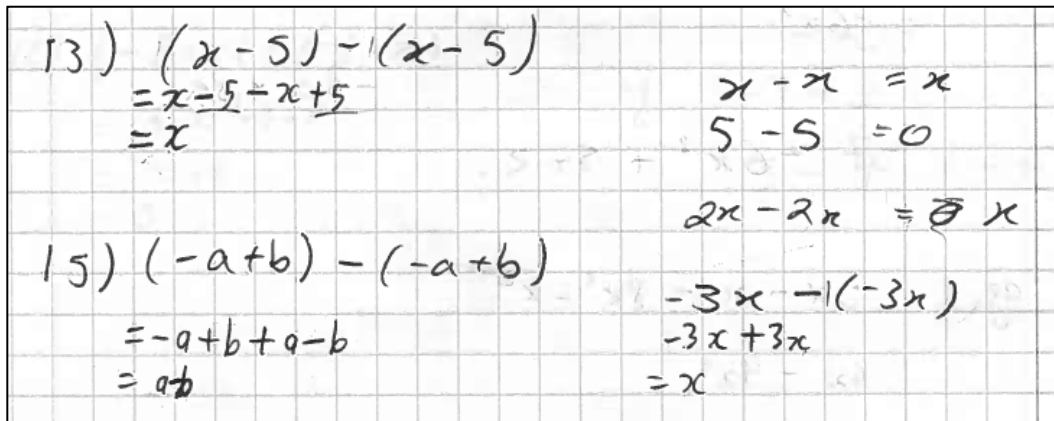 13) (x - 5) - 1(x - 5)
= x - 5 - x + 5
= x
15) (-a + b) - (-a + b)
= -a + b + a - b
= ab
x - x = x
5 - 5 = 0
2x - 2x = x
-3x - 1(-3x)
-3x + 3x
= x